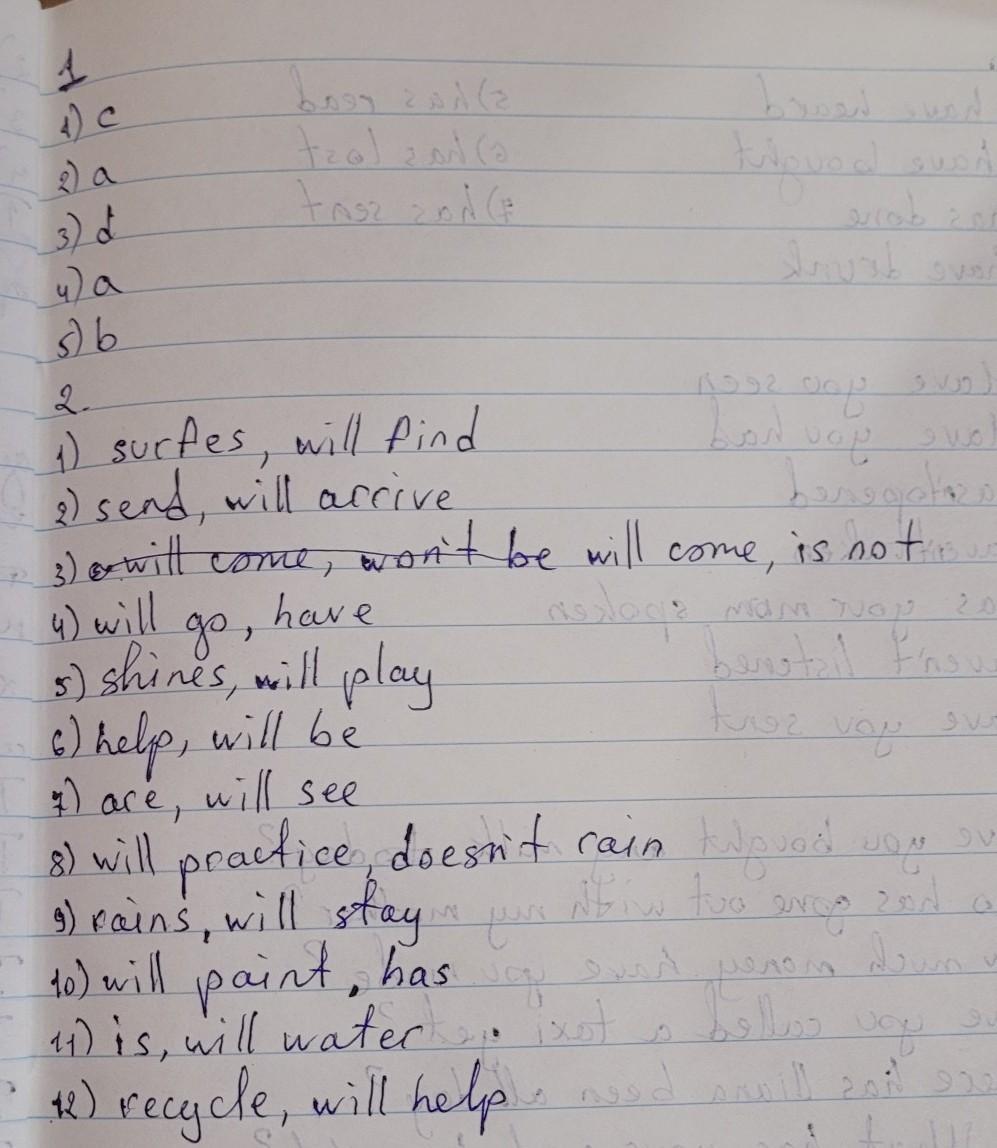 1
1) c
2) a
3) d
4) a
5) b
2.
1) surfes, will find
2) send, will arrive
3) will come, won't be will come, is not
4) will go, have
5) shines, will play
6) help, will be
7) are, will see
8) will practice, doesn't rain
9) rains, will stay
10) will paint, has
11) is, will water
12) recycle, will help